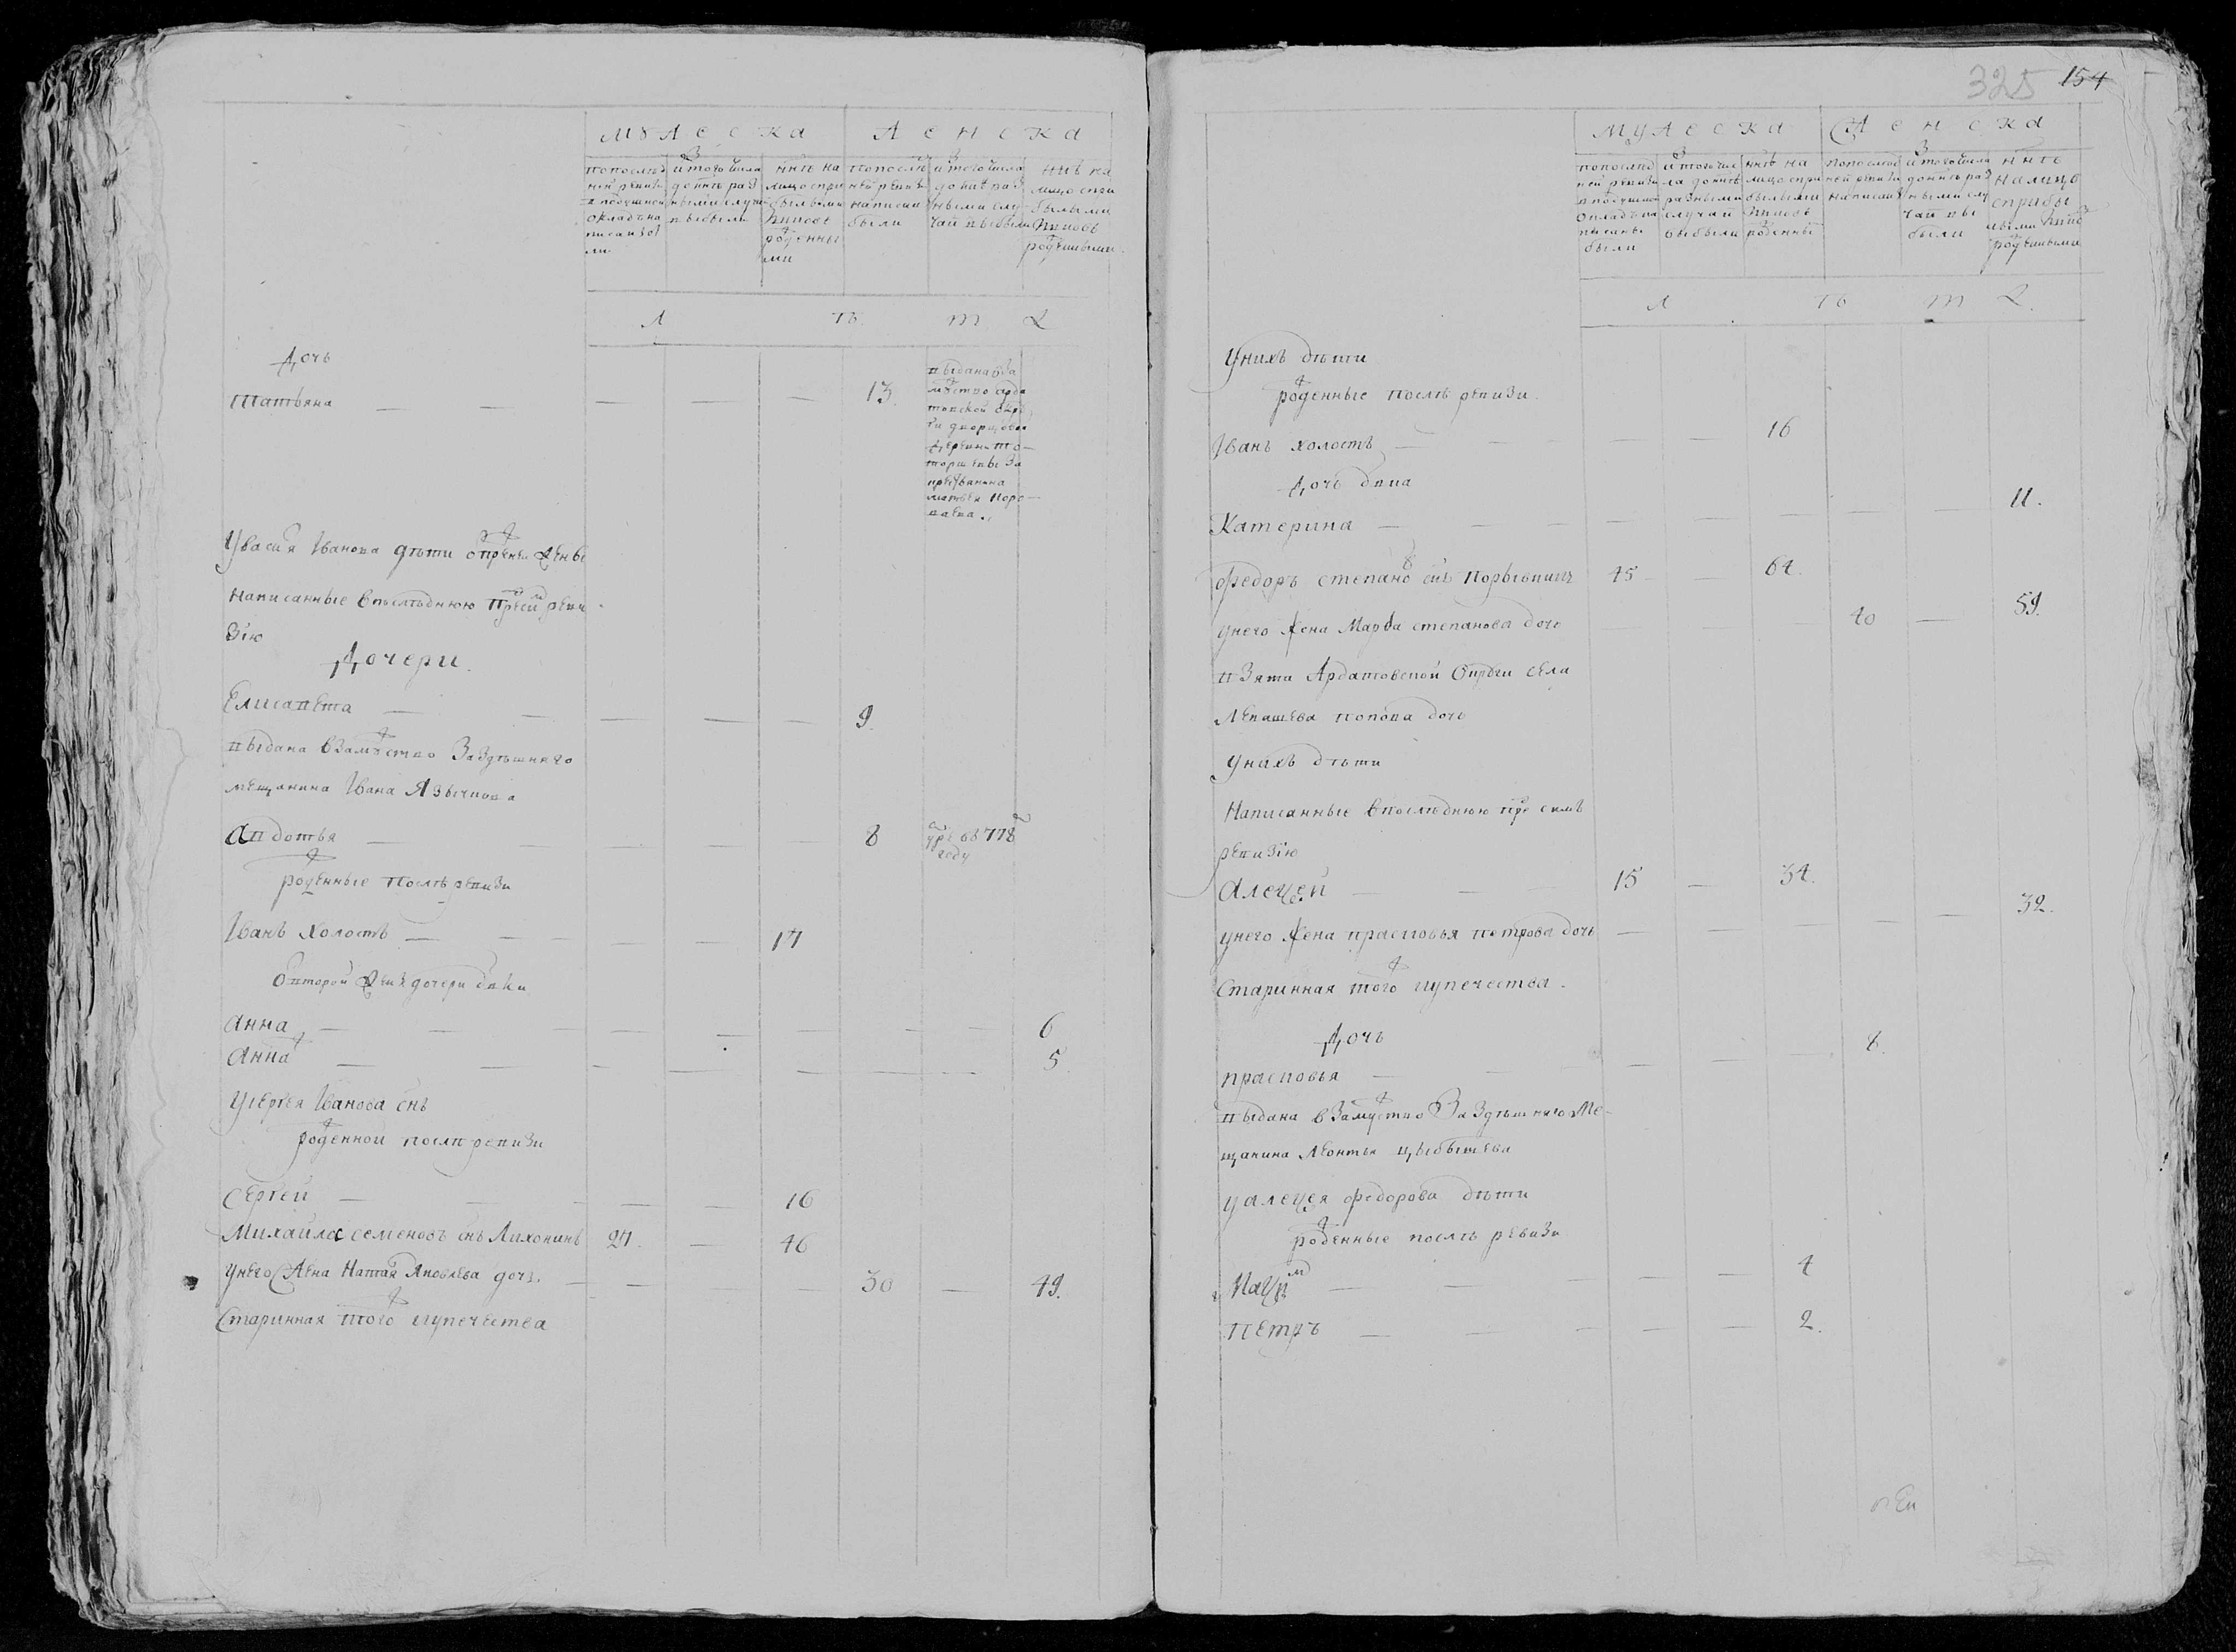 325 154
мужеска женска
по последней ревизи в подушной окладъ написаны были
из того числа до ныне разными случаи выбыли
ныне на лицо с прибылыми и вновь рожденными
по последней ревизи написаны были
из того числа до ныне разными случаи выбыли
ныне на лицо с прибылыми и вновь рожденными
л ѣ т а
Дочь
Татьяна — — — — — 13.
выдана в за
мужство арда
товской округи
дворцовой
деревни
за
крестьянина
Матвея
У василя Иванова дѣти от первей жены
Написанные в последнюю пред сим реви
зiю
Дочери.
Елисавета — — — — — 9.
выдана в замужство за здѣшняго
мещанина Ивана Язычкова
Авдотья — — — — — 8 умре въ 778
году
рожденные послѣ ревизи
Иванъ холостъ — — — — — 17
От второй жены дочери девки
Анна — — — — — — — — 6
Анна — — — — — — — 5.
У сергея Иванова снъ
рожденной послѣ ревизи
Сергей — — — — — 16
Михайла семеновъ снъ Лихонинъ 27. — 46
У него жена Наталя Яковлева дочь. — — — — 30 — 49.
Старинная того купечества
мужеска женска
по последней ревизи в подушной окладъ написаны были
из того числа до ныне разными случаи выбыли
ныне на лицо с прибылыми и вновь рожденны
по последней ревизи написаны
из того числа до ныне разными случаи выбыли
ныне на лицо с прибылыми и вновь рожденными
л ѣ т а.
У нихъ дѣти
рожденные послѣ ревизи.
Иванъ холостъ — — — — 16
Дочь девка
Катерина — — — — — — — — 11.
Федоръ степановъ снъ Порывкинъ 45 — — 64.
у него жена Марфа степанова дочь — — — 40 — 59.
взята Ардатовской Округи села
Лекашева попова дочь
У нихъ дѣти
Написанные в последнюю пред симъ
ревизiю
Алексей — — — 15 — 34.
у него жена прасковья петрова дочь — — — — — 32.
Старинная того купечества.
Дочь
прасковья — — — — — 8.
выдана в замужство За здѣшняго Ме-
щанина Леонтья Цыбышева
у алексея федорова дѣти
рожденные послѣ ревизи
Максим — — — — — 4
Петръ — — — — — 2.